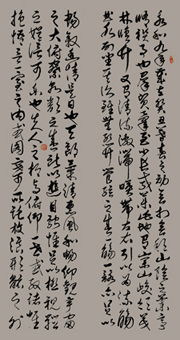 永和九年歲在癸丑暮春之初會于會稽山陰之蘭亭
脩禊事也群賢畢至少長咸集此地有崇山峻領茂
林脩竹又有清流激湍映帶左右引以為流觴
曲水列坐其次雖無絲竹管弦之盛一觴一詠亦足以
暢敘幽情是日也天朗氣清惠風和暢仰觀宇宙
之大俯察品類之盛所以遊目騁懷足以極視聽
之娛信可樂也夫人之相與俯仰一世或取諸懷
抱悟言一室之內或因寄所託放浪形骸之外